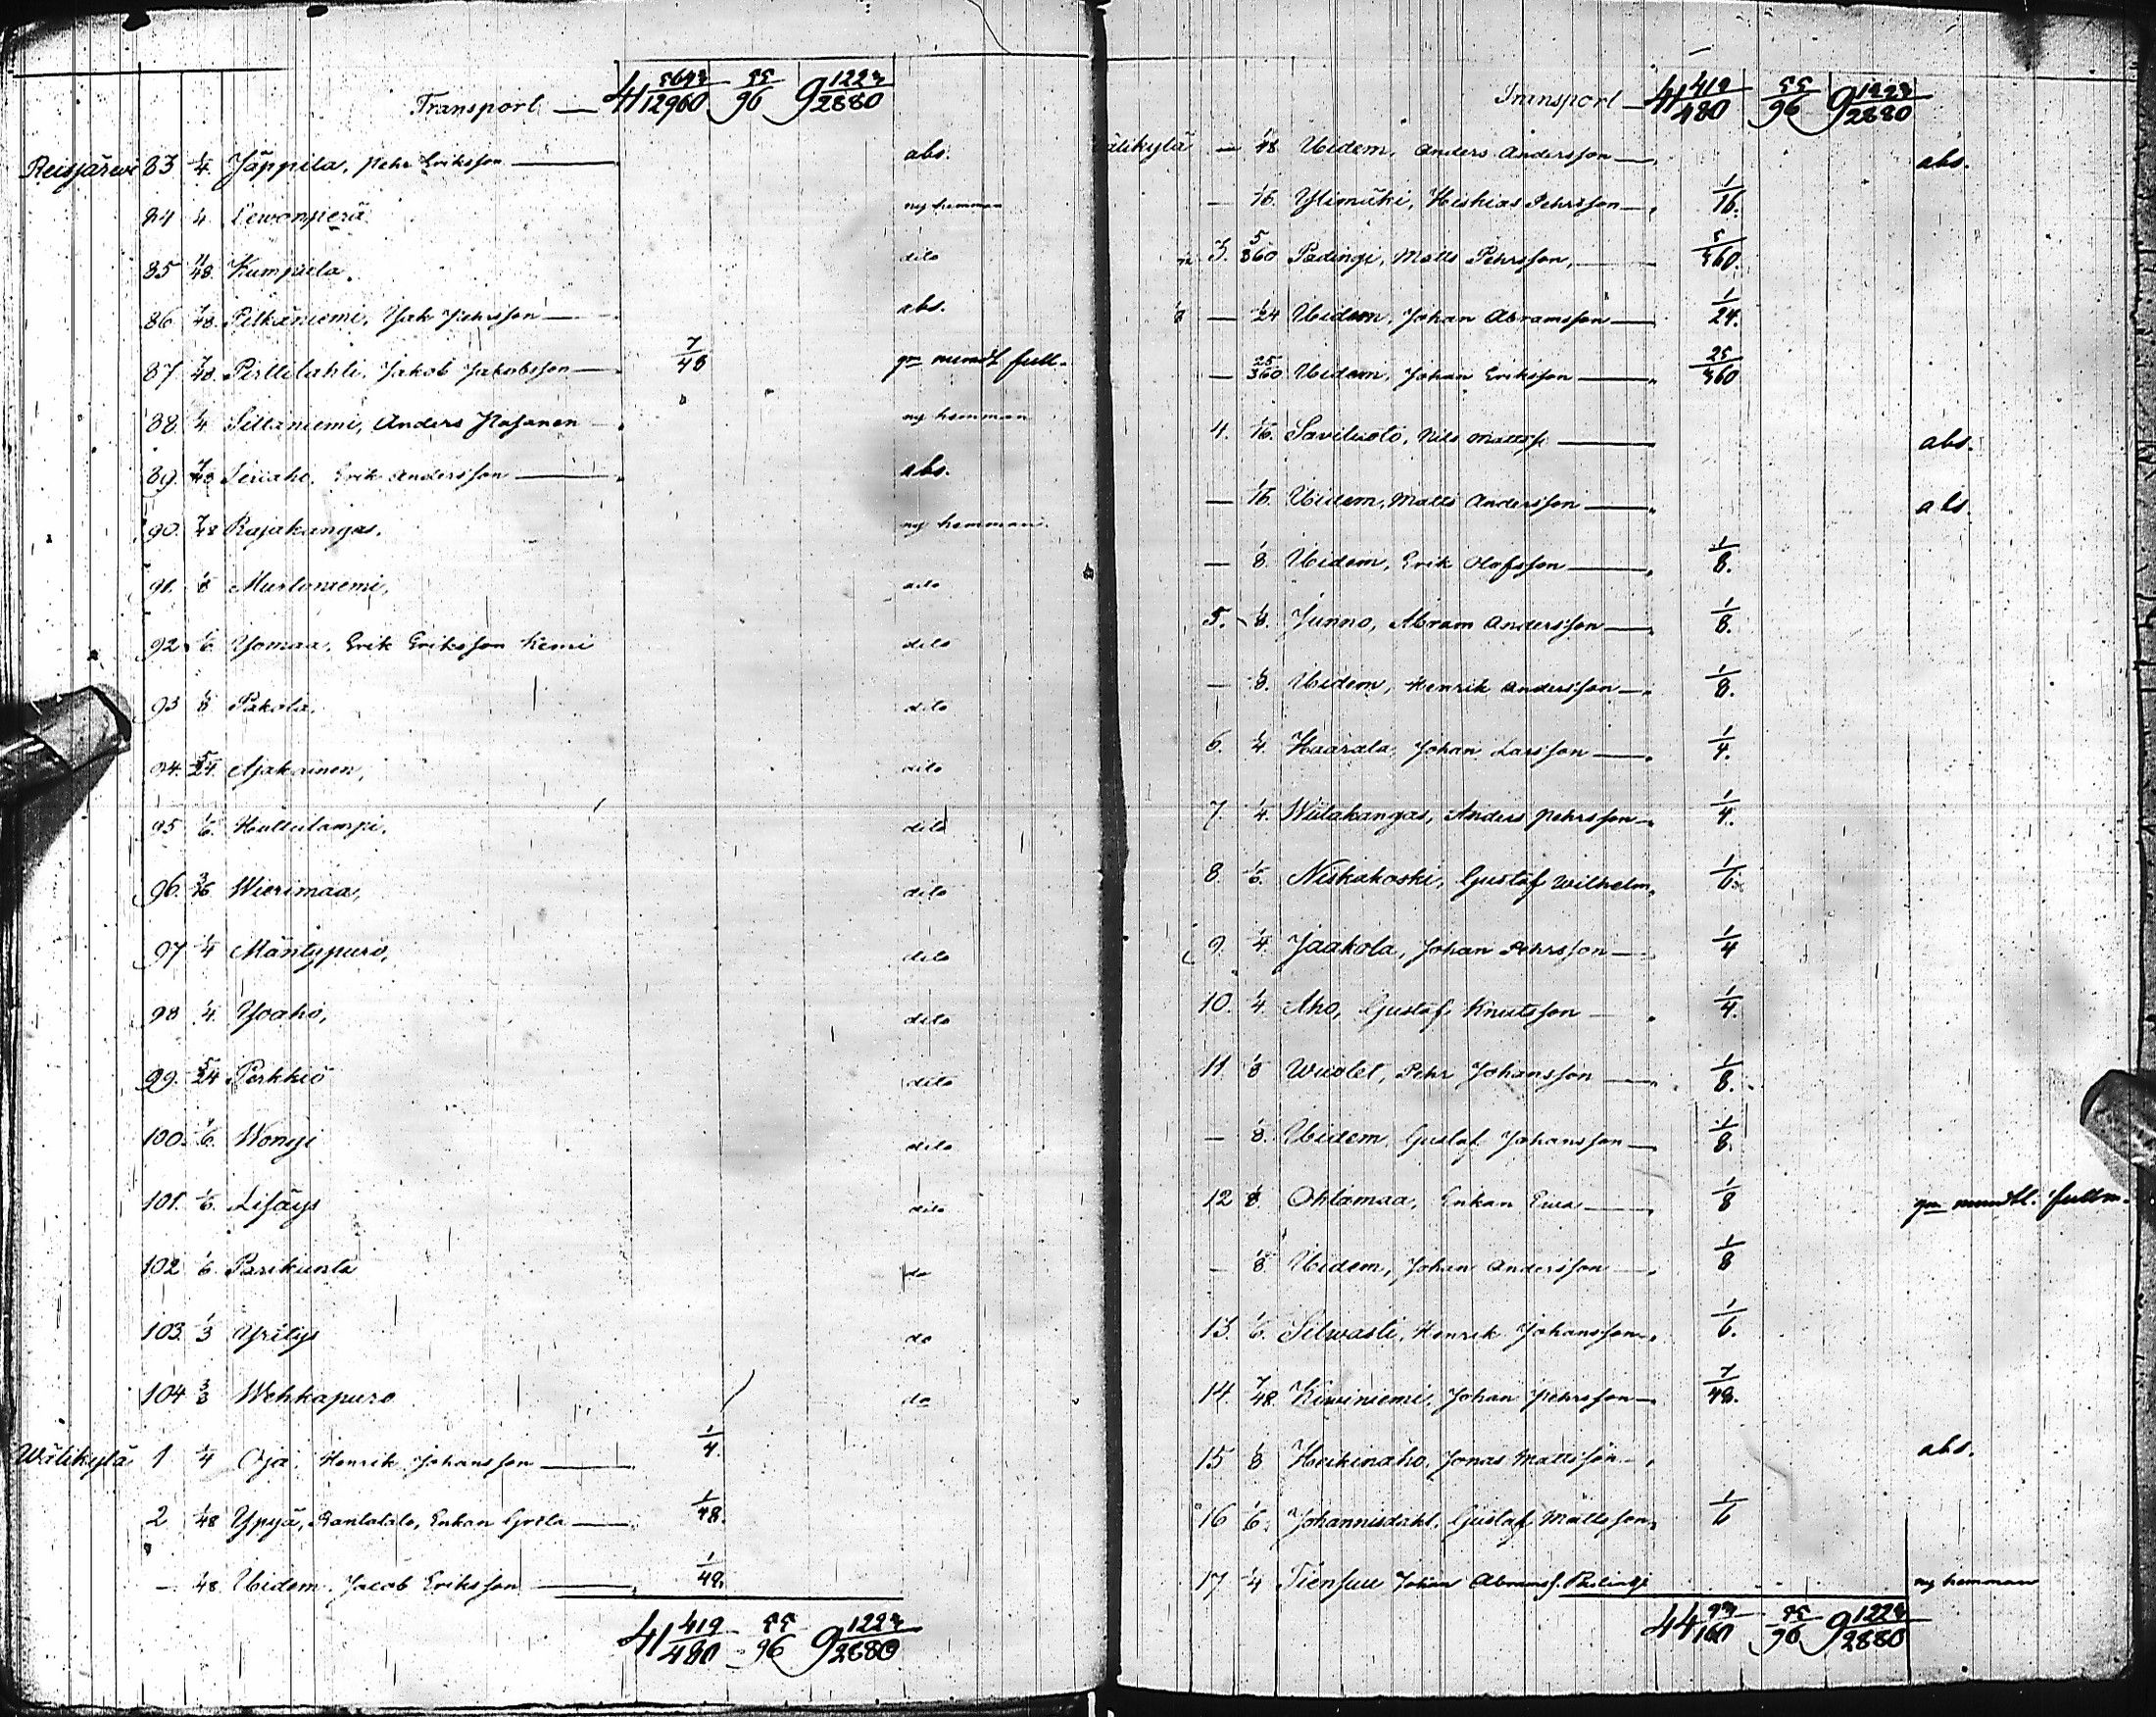 Transport — 41 5643/12960 55/96 9 1223/2880
Reisjärvi 83 1/4 Jäppila, Pehr Eriksson — abs.
84 1/4 Lewonperä ny hemman
85 11/48 Kumpula. dito
86 7/48 Pitkäniemi, Jak Pehrsson — abs.
87 7/48 Perttilahti, Jakob Jakobsson — 7/48 gm mundt full.
88. 1/4 Siltaniemi, Anders ny hemman
89. 7/48 Erik Andersson — abs.
90. 7/48 Rajakangas, ny hemman.
91. 1/8 Murtoniemi, dito
92. 1/6 Yomaa, Erik Eriksson Kemi dito
93 1/8 Pakola, dito
94. 5/24. Ajakainen, dito
95 1/6. Huttulampi, dito
96. 3/16 Wierimaa, dito
97 1/4 Mäntypuro, dito
98 1/4. Yoaho, dito
99. 5/24 Perkkiö dito
100. 1/6. Wongi dito
101. 1/6. Lisäys dito
102 1/6 Parikunta do
103. 1/3 Yritys do
104 3/8 Wehkapuro do
Wälikylä 1 1/4 Oja, Henrik Johansson — 1/4.
2 1/48 Ypyä, Rantatalo, Enkan Greta — 1/48.
— 1/48 Ibidem, Jacob Eriksson — 1/48.
41 419/480 55/96 9 1223/2880
Transport — 41 419/480 55/96 9 1223/2880
älikylä — 1/48 Ibidem, Anders Andersson — abs.
— 1/16. Ylimäki, Heskias Pehrsson — 1/16.
3. 5/360 Padingi, Matts Pehrsson, — 5/360.
— 1/24 Ibidem, Johan Abramsson — 1/24.
— 25/360 Ibidem, Johan Eriksson — 25/360
4. 1/16. Saviluoto, Nils Mattss. — abs.
— 1/16. Ibidem, Matts Andersson — abs
— 1/8. Ibidem, Erik Olofsson — 1/8.
5. 1/8. Junno, Abram Andersson — 1/8.
— 1/8. Ibidem, Henrik Andersson — 1/8.
6. 1/4. Haarala, Johan Larsson — 1/4.
7. 1/4. Wiitakangas, Anders Pehrsson — 1/4.
8. 1/6. Niskakoski, Gustaf Wilhelm, 1/6.
9. 1/4. Jaakola, Johan Pehrsson — 1/4
10. 1/4. Aho, Gustaf Knutsson — 1/4.
11. 1/8 Wuolet, Pehr Johansson — 1/8.
— 1/8. Ibidem, Gustaf Johansson — 1/8.
12 1/8 Ohtamaa, Enkan Ewa — 1/8 gm mundtl. fullm.
— 1/8. Ibidem, Johan Andersson — 1/8
13. 1/6. Silwasti, Henrik Johansson — 1/6.
14. 7/48. Kiwiniemi, Johan Pehrsson — 7/48.
15 1/8 Heikinaho, Jonas Mattsson — abs.
16 1/6. Johannisdahl, Gustaf Mattsson, 1/6
17 1/4 Tiensuu Johan Abramss. ny hemman
44 93/160 55/96 9 1223/2880